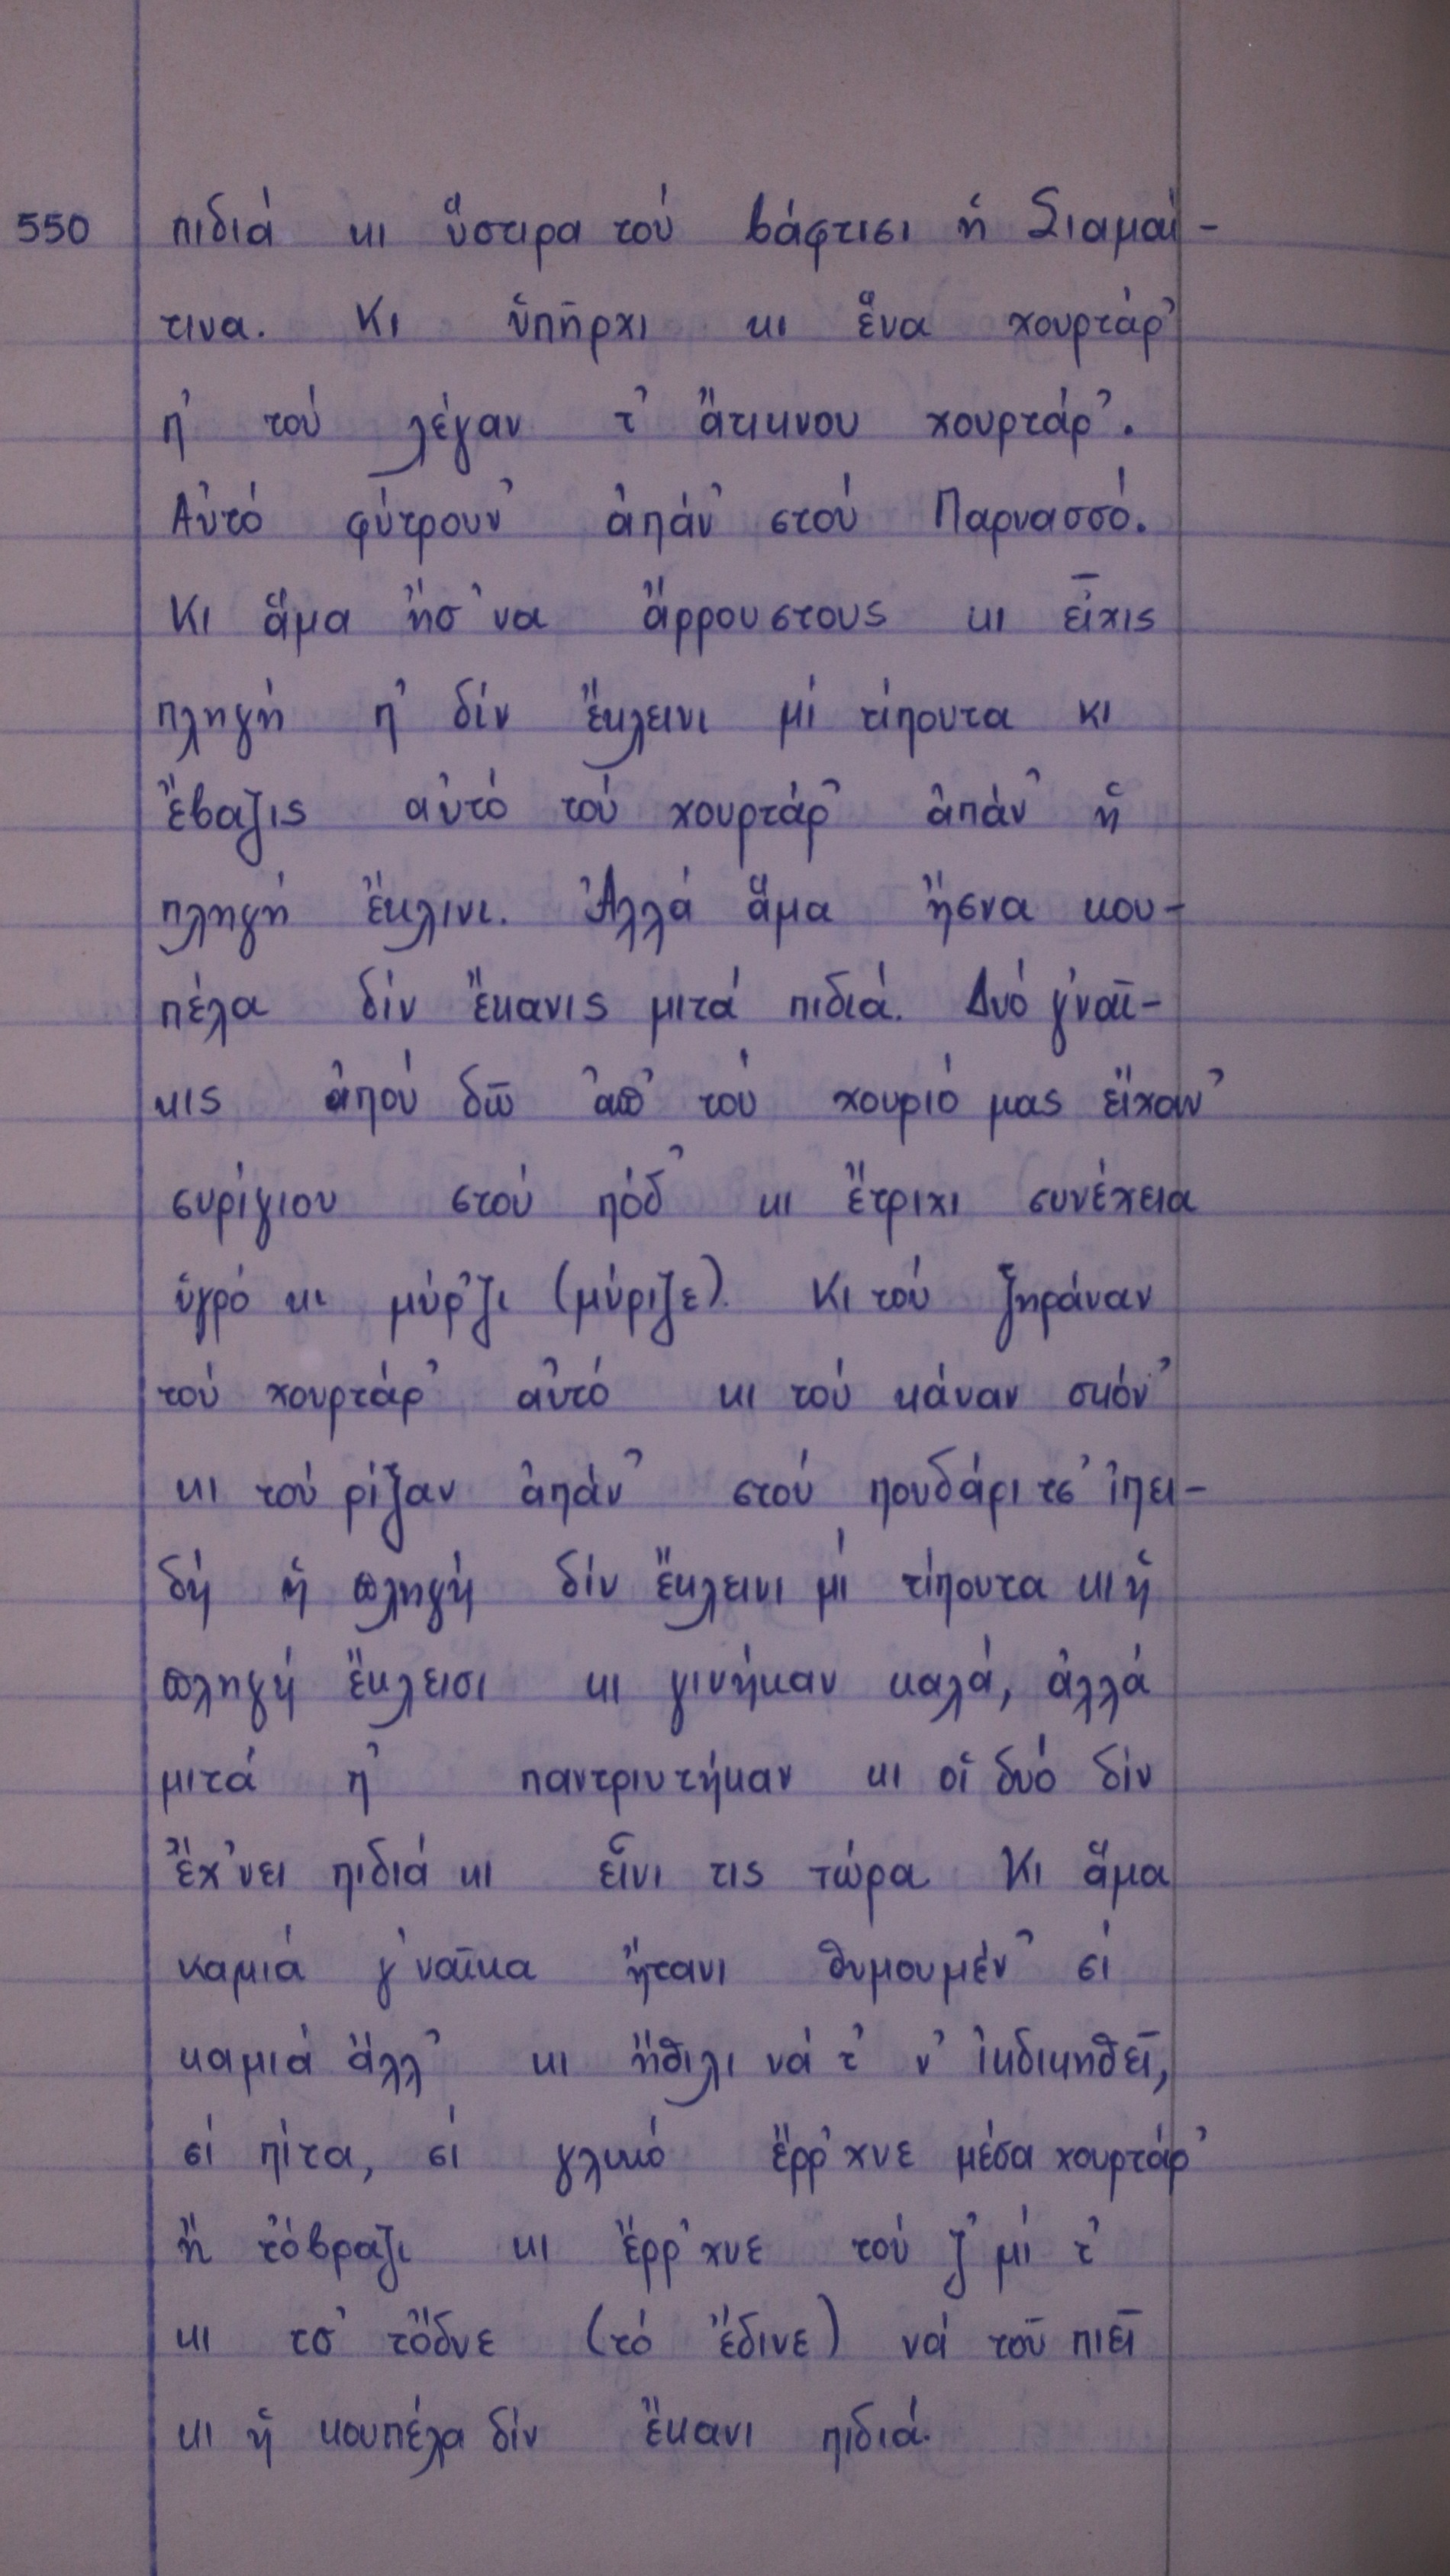 550 πιδιά κι ὕστιρα τού βάφτισι ἡ Σιαμαΐ-
τινα. Κι ὑπῆρχι κι ἕνα χουρτάρ'
π' τού λέγαν τ' ἄτικνου χουρτάρ'.
Αὐτό φύτρουν' ἀπάν' στού Παρνασσό.
Κι ἅμα ἤσ'να ἄρρουστους κι εἶχις
πληγή π' δίν ἔκλεινι μί τίπουτα κι
ἔβαζις αὐτό τού χουρτάρ' ἀπάν' ἡ
πληγή ἔκλινι. Ἀλλά ἅμα ἤσνα κου-
πέλα δίν ἔκανις μιτά πιδιά. Δυό γ'ναῖ-
κις ἀπού δῶ ἀπ' τού χουριό μας εἴχαν'
συρίγιου στού πόδ' κι ἔτριχι συνέχεια
ὑγρό κι μύρ'ζι (μύριζε). Κι τού ξηράναν
τού χουρτάρ' αὐτό κι τού κάναν σκόν'
κι τού ρίξαν ἀπάν' στού πουδάρι τσ' ἰπει-
δή ἡ πληγή δίν ἔκλεινι μί τίπουτα κι ἡ
πληγή ἔκλεισι κι γινήκαν καλά, ἀλλά
μιτά π' παντριυτήκαν κι οἱ δυό δίν
ἔχ'νει πιδιά κι εἶνι τις τώρα Κι ἅμα
καμιά γ'ναῖκα ἤτανι θυμουμέν' σί
καμιά ἄλλ' κι ἤθιλι νά τ' ν' ἰκδικηθεῖ,
σί πίτα, σί γλυκό ἔρρ'χνε μέσα χουρτάρ'
ἤ τόβραζι κι ἔρρ'χνε τού ζ'μί τ'
κι τσ' τὄδνε (τό ἔδινε) νά τοῦ πιεῖ
κι ἡ κουπέλα δίν ἔκανι πιδιά.